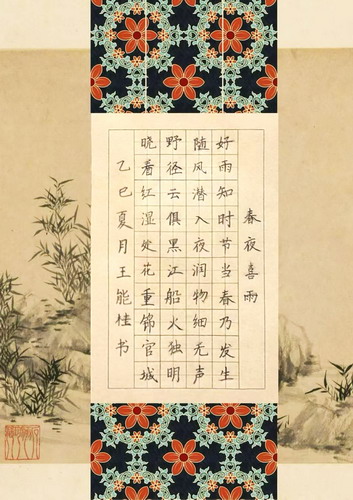 春夜喜雨
好雨知时节当春乃发生
随风潜入夜润物细无声
野径云俱黑江船火独明
晓看红湿处花重锦官城
乙巳夏月王能桂书